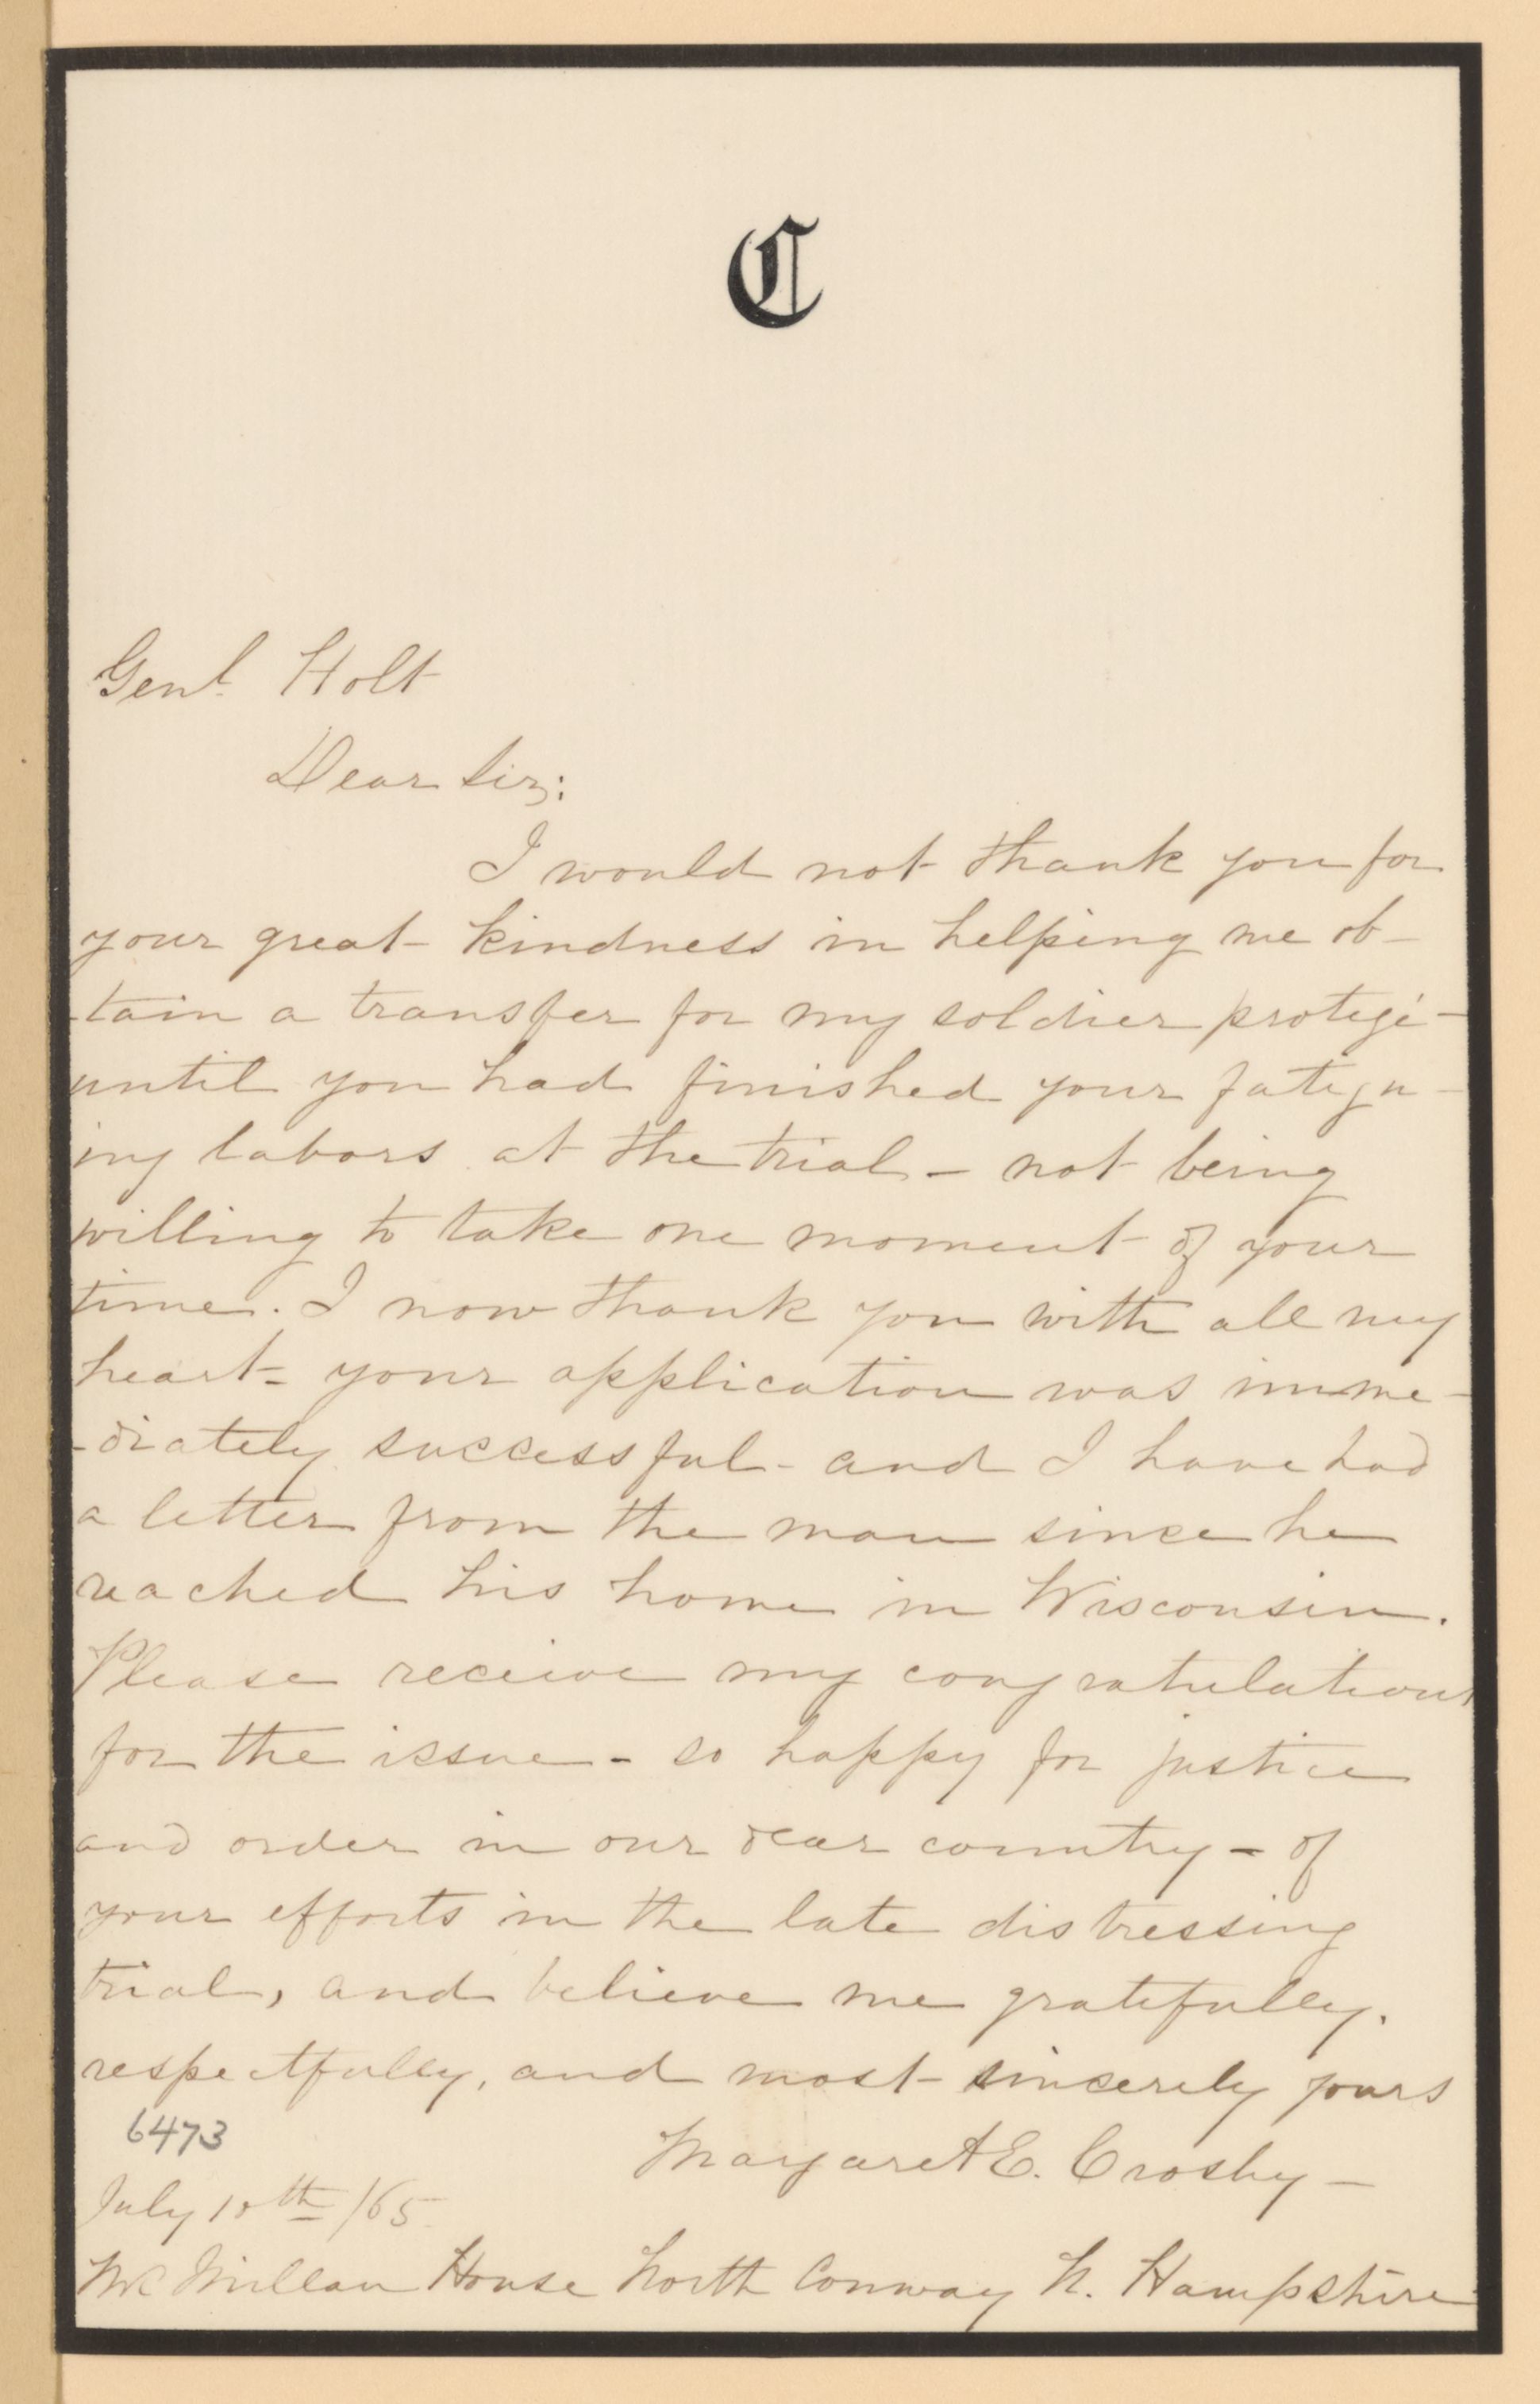 C
Genl. Holt
Dear Sir;
I would not thank you for
your great kindness in helping me ob-
-tain a transfer for my soldier protegé-
until you had finished your fatigu-
ing labors at the trial - not being
willing to take one moment of your
time. I now thank you with all my
heart - your application was imme-
-diately successful - and I have had
a letter from the man since he
reached his home in Wisconsin.
Please receive my congratulations
for the issue - so happy for justice
and order in our dear country - of
your efforts in the late distressing
trial, and believe me gratefully,
respectfully, and most sincerely yours
6473
Margaret E. Crosby -
July 10th /65
McMillan House North Conway N. Hampshire